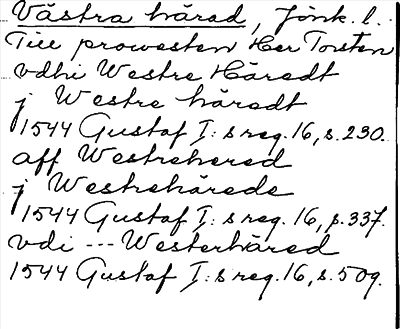 Västra härad, Jönk. l.
Till prowesten Her Torsten
vdhi Westre Häredt
j Westre häredt
1544 Gustaf I: s reg. 16, s. 230.
aff Westrehered
j Westrehärede
1544 Gustaf I: s reg. 16, s. 337.
vdi --- Westerhäred
1544 Gustaf I: s reg. 16, s. 509.